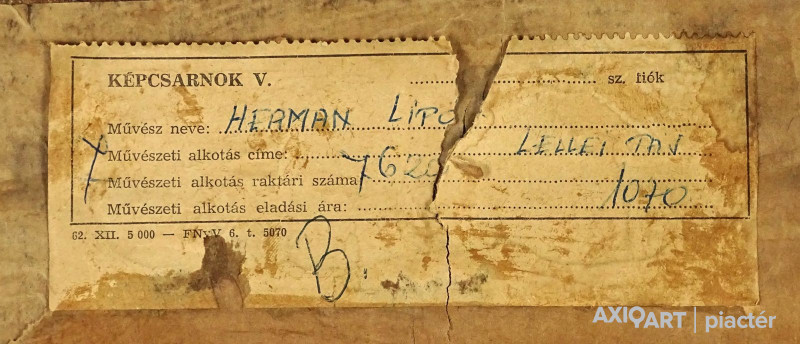 KÉPCSARNOK V. sz. fiók
Művész neve: HERMAN LIPÓT
Művészeti alkotás címe: LELLEI TÁJ
Művészeti alkotás raktári száma 7620
Művészeti alkotás eladási ára: 1070
62. XII. 5 000 — FNyV 6. t. 5070
B.
AXIOART | piactér